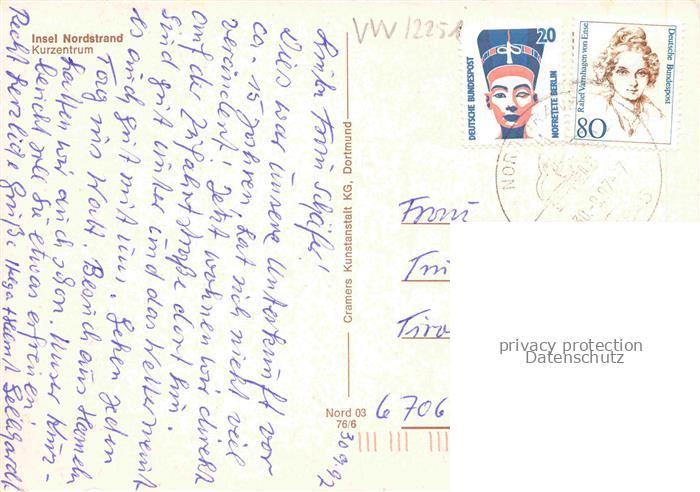 Insel Nordstrand
Kurzentrum
VW/2251
DEUTSCHE BUNDESPOST
20
NOFRETETE BERLIN
Rahel Varnhagen von Ense
80
Deutsche Bundespost
Cramers Kunstanstalt KG, Dortmund
Nord 03
76/6
30.9.92
Dies war unsere Unterkunft vor
ca. 15 Jahren, hat sich nicht viel
verändert! Jetzt wohnen wir direkt
auf der Zufahrtstraße dort hin.
Sind gut unter und das Wetter meint
es auch gut mit uns. Gehen jeden
Tag ins Watt. Besuch aus Hameln
hatten wir auch schon. Unser Kurz-
bericht soll Sie etwas erfreuen!
Recht herzliche Grüße
Frau
6706
privacy protection
Datenschutz